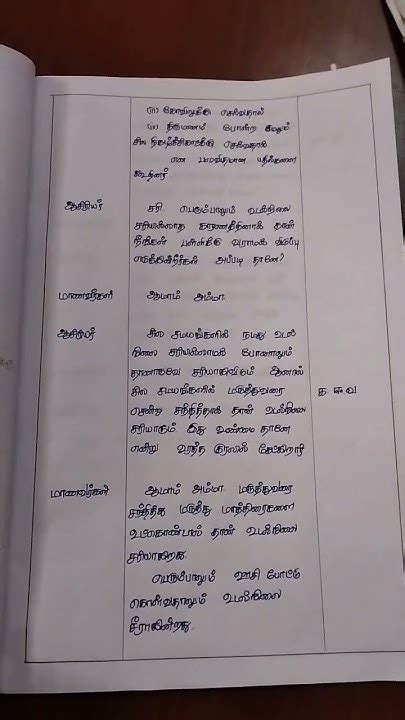 (iii) கோவிலுக்கு செல்வதால்
(iv) திருமணம் போன்ற சுபமும்
சில நிகழ்ச்சிகளுக்கு செல்வதால்
என பலவிதமான பதில்களை
கூறினர்
ஆசிரியர்
சரி பெரும்பாலும் உடல்நிலை
சரியில்லாத காரணத்தினால் தான்
நீங்கள் பள்ளிக்கு வராமல் விடுப்பு
எடுக்கிறீர்கள் அப்படி தானே?
மாணவர்கள்
ஆமாம் அம்மா
ஆசிரியர்
சில சமயங்களில் நமது உடல்
நிலை சரியில்லாமல் போனாலும்
தானாகவே சரியாகிவிடும் ஆனால்
சில சமயங்களில் மருத்துவரை
த.ஈ.வ
சென்று சந்தித்தால் தான் உடல்நிலை
சரியாகும் இது உண்மை தானே
என்று உரத்த குரலில் கேட்கிறார்
மாணவர்கள்
ஆமாம் அம்மா மருத்துவரை
சந்தித்து மருத்து மாத்திரைகளை
உட்கொண்டால் தான் உடல்நிலை
சரியாகிறது
பெரும்பாலும் ஊசி போட்டு
கொள்வதாலும் உடல்நிலை
சீராகின்றது